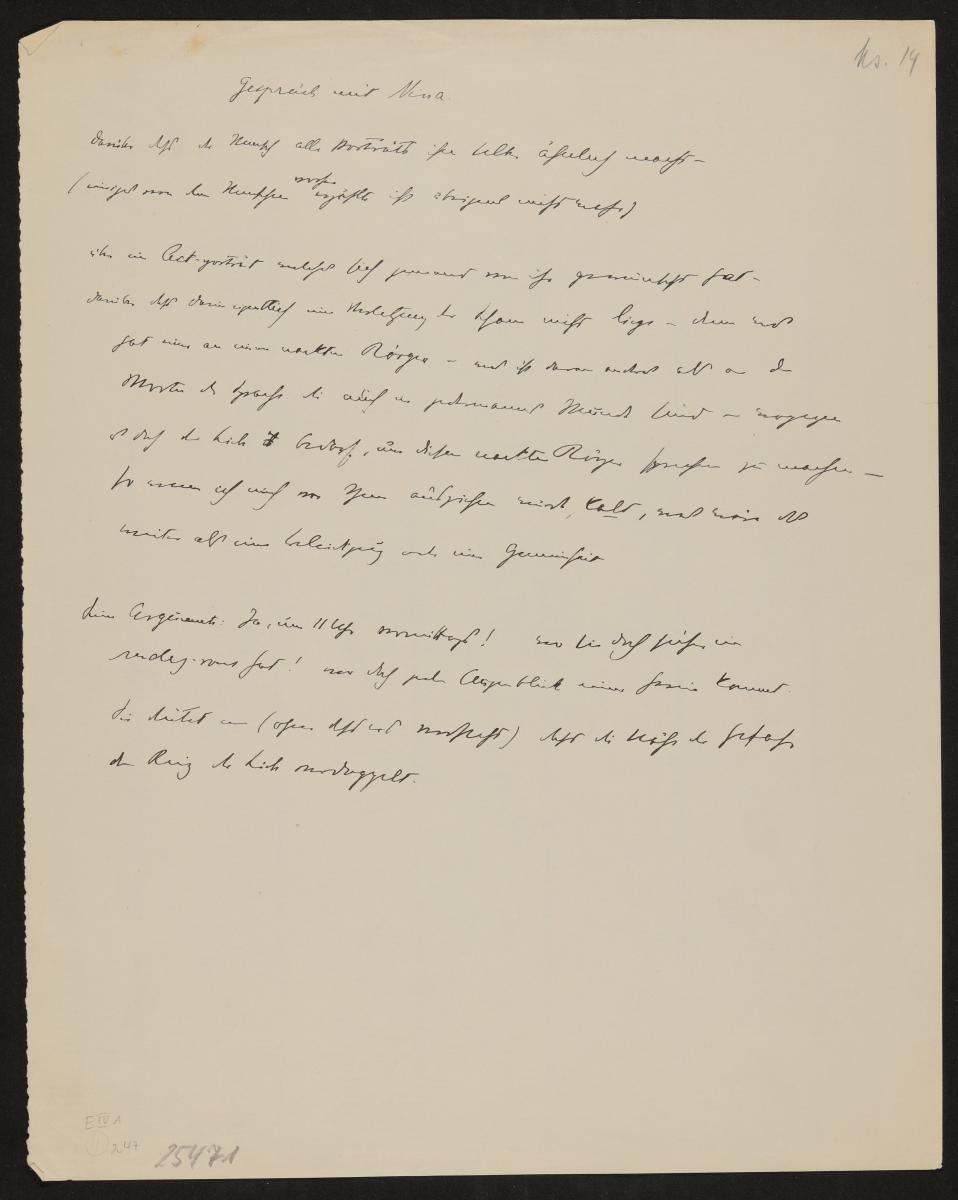 Ks. 14
Gespräch mit Nina.
darüber dass der Mensch alle Porträts sich selber ähnlich macht –
(einiges von dem Menschen erzählte ist übrigens nicht wahr)
über ein Act-porträt welches sich jemand von ihr gewünscht hat –
darüber dass darin eigentlich eine Verletzung der Scham nicht liege – denn was
hat man an einem nackten Körper – was ist daran anderes als an den
Worten der Sprache die auch in jedermanns Munde sind – wogegen
es doch der Liebe bedarf, um diesen nackten Körper sprechen zu machen –
so wenn ich mich vor Ihnen ausziehen würde, kalt, was wäre das
weiter als eine Beleidigung oder eine Gemeinheit
Sein Argument: Ja, um 11 Uhr vormittags! wo sie doch früher ein
rendez-vous hat! wo doch jeden Augenblick einer herein kommt.
Sie deutet an (ohne dass er's versteht) dass die Nähe der Gefahr
den Reiz der Liebe verdoppelt.
E IV A
247
25471